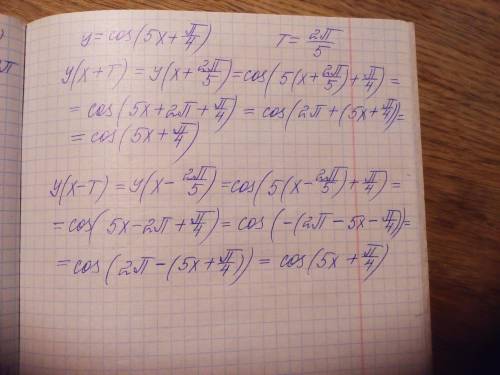 y = cos(5x + π/4)    T = 2π/5
y(x+T) = y(x + 2π/5) = cos(5(x + 2π/5) + π/4) =
= cos(5x + 2π + π/4) = cos(2π + (5x + π/4)) =
= cos(5x + π/4)
y(x-T) = y(x - 2π/5) = cos(5(x - 2π/5) + π/4) =
= cos(5x - 2π + π/4) = cos(-(2π - 5x - π/4)) =
= cos(2π - (5x + π/4)) = cos(5x + π/4)